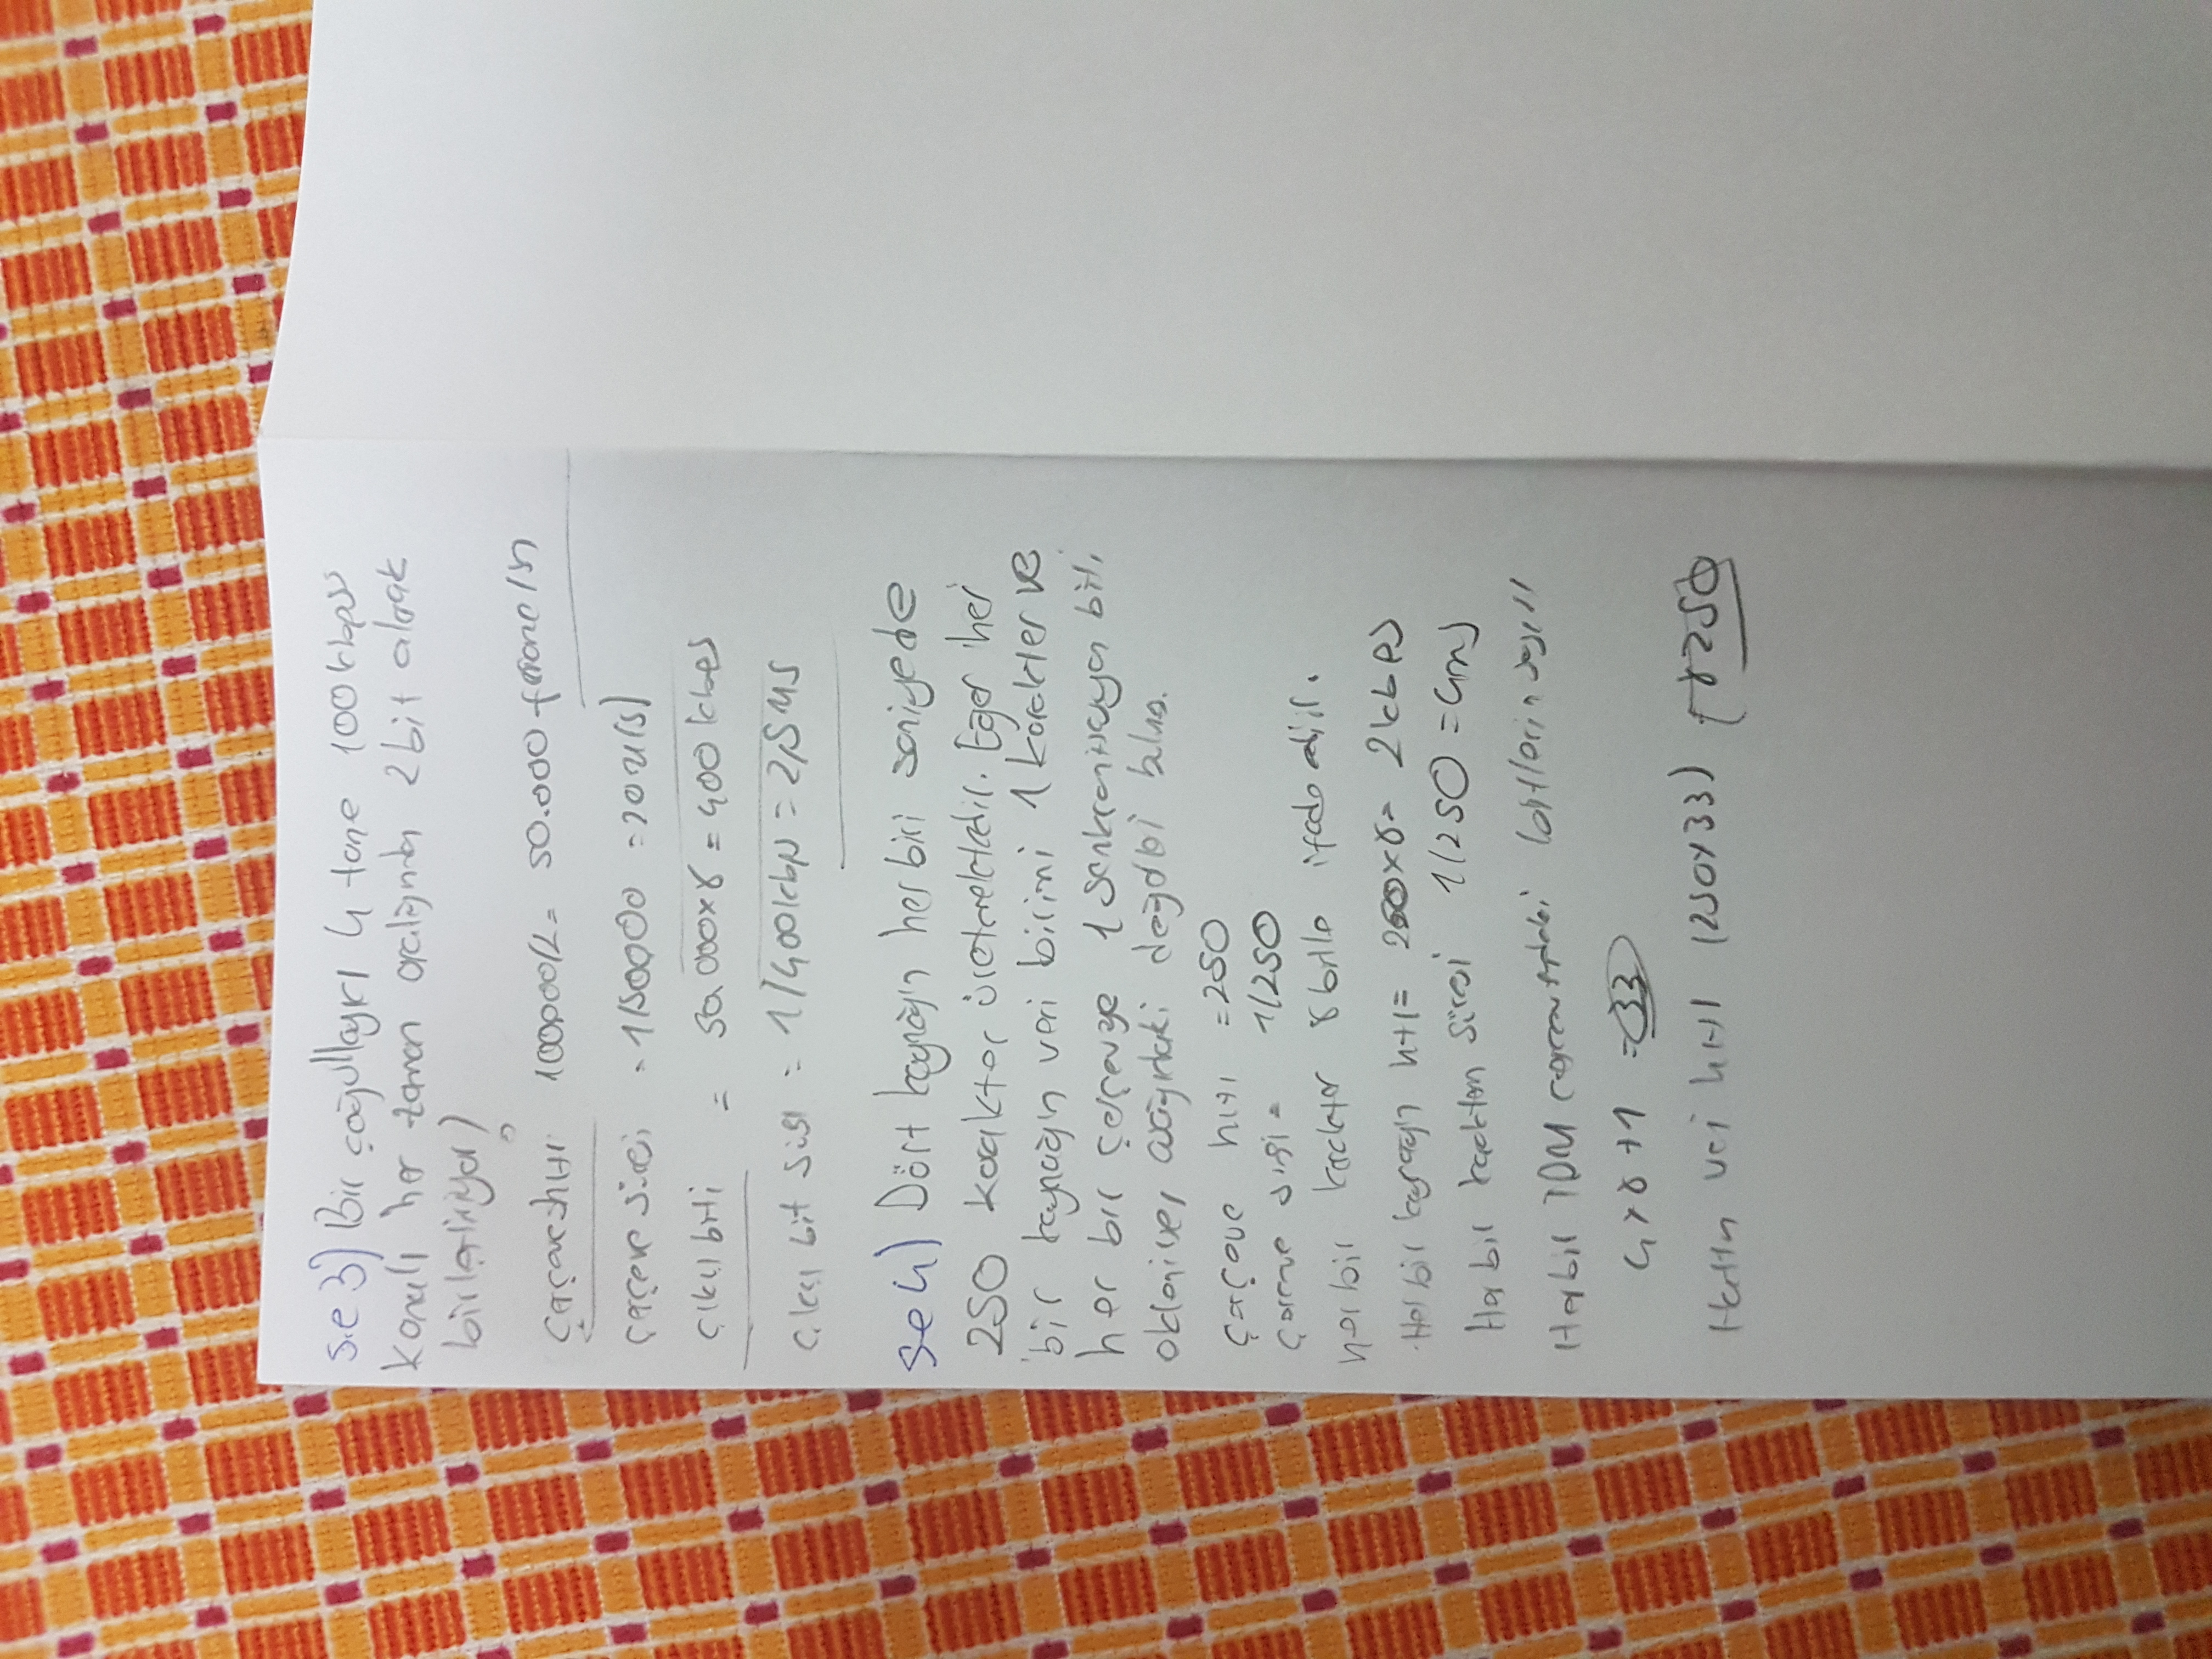 s.e 3) Bir çoğullayıcı 4 tane 100 kbps
kanalı her zaman aralığında 2 bit alarak
birleştiriyor)
?
çerçeve hızı 100000/2 = 50.000 frame/sn
çerçeve süresi = 1/50000 = 20 u(s)
çıkış biti = 50.000x8 = 400 kbps
çıkış bit süresi = 1/400kbps = 2,5 us
se 4) Dört kaynağın her biri saniyede
250 karakter üretmektedir. Eger her
bir kaynağın veri birimi 1 karakter ve
her bir çerçeveye 1 senkronizasyon biti
ekleniyor, aşağıdaki değerleri bulun.
çerçeve hızı = 250
çerçeve süresi = 1/250
her bir karakter 8 bitle ifade edilir.
Her bir kaynağın hızı = 250x8 = 2 kbps
Her bir karakterin süresi 1/250 = 4ms
Her bir TDM çerçevesindeki bitlerin sayısı
4x8+1 = 33
Hattın veri hızı (250x33) 8250